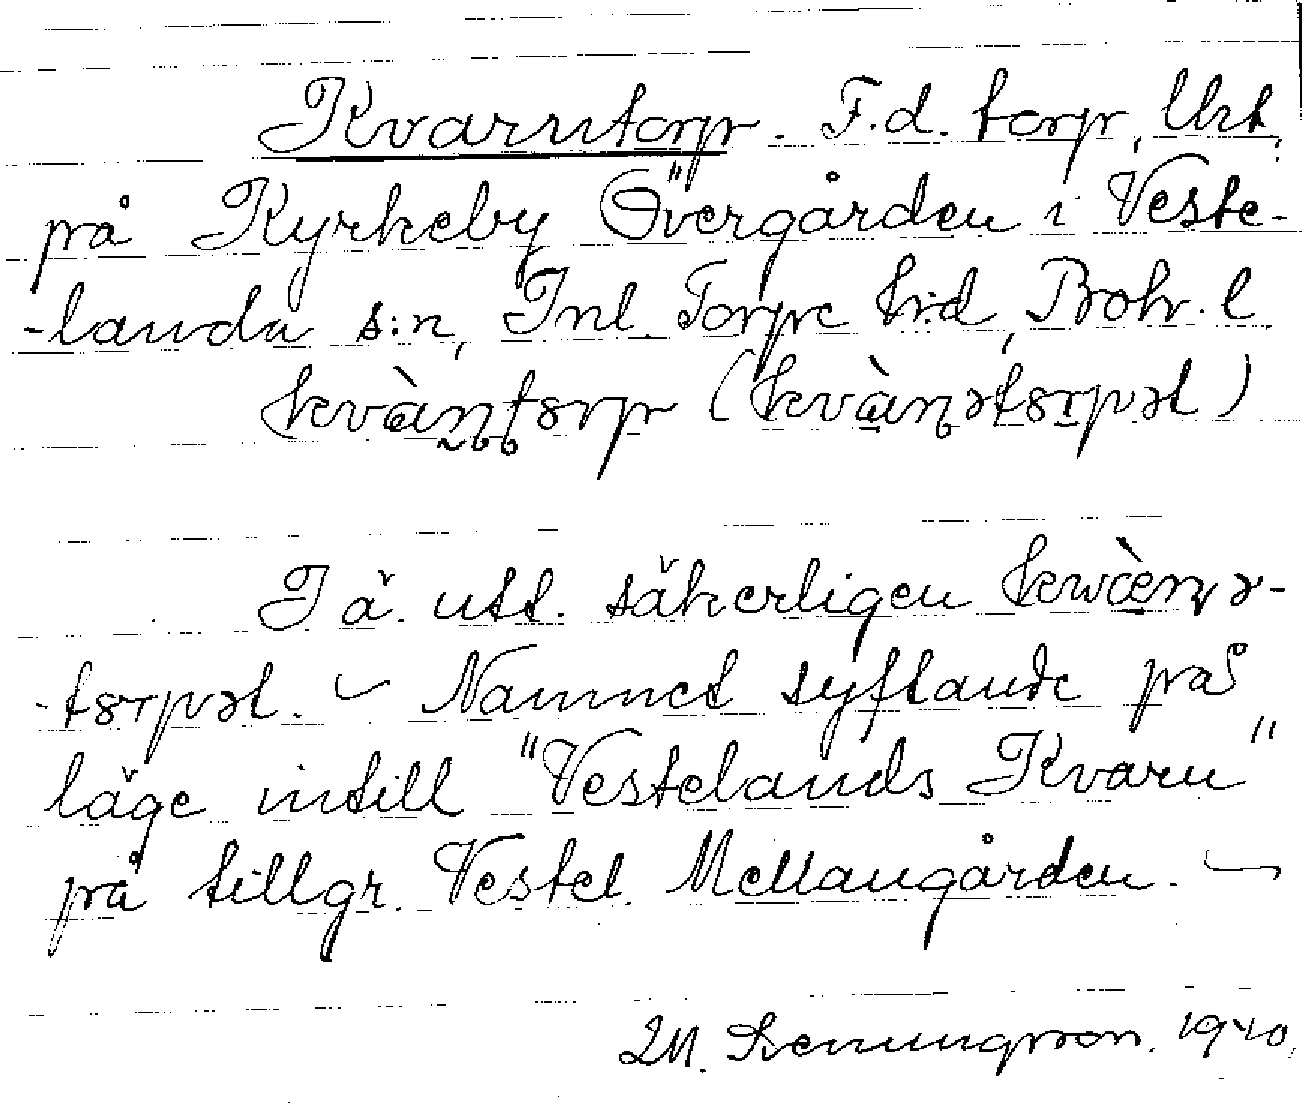 Kvarntorp. F.d. torp, Utk.
på Kyrkeby Övergården i Veste-
-landa s:n, Inl. Torpe h:d, Boh. l
kvàn̥ʈɔrp (kvàɳəʈɔrpət)
I ä. utt. säkerligen
-tɔrpət. – Namnet syftande på
läge intill "Vestelands Kvarn"
på tillgr. Vestel. Mellangården. –
1940.